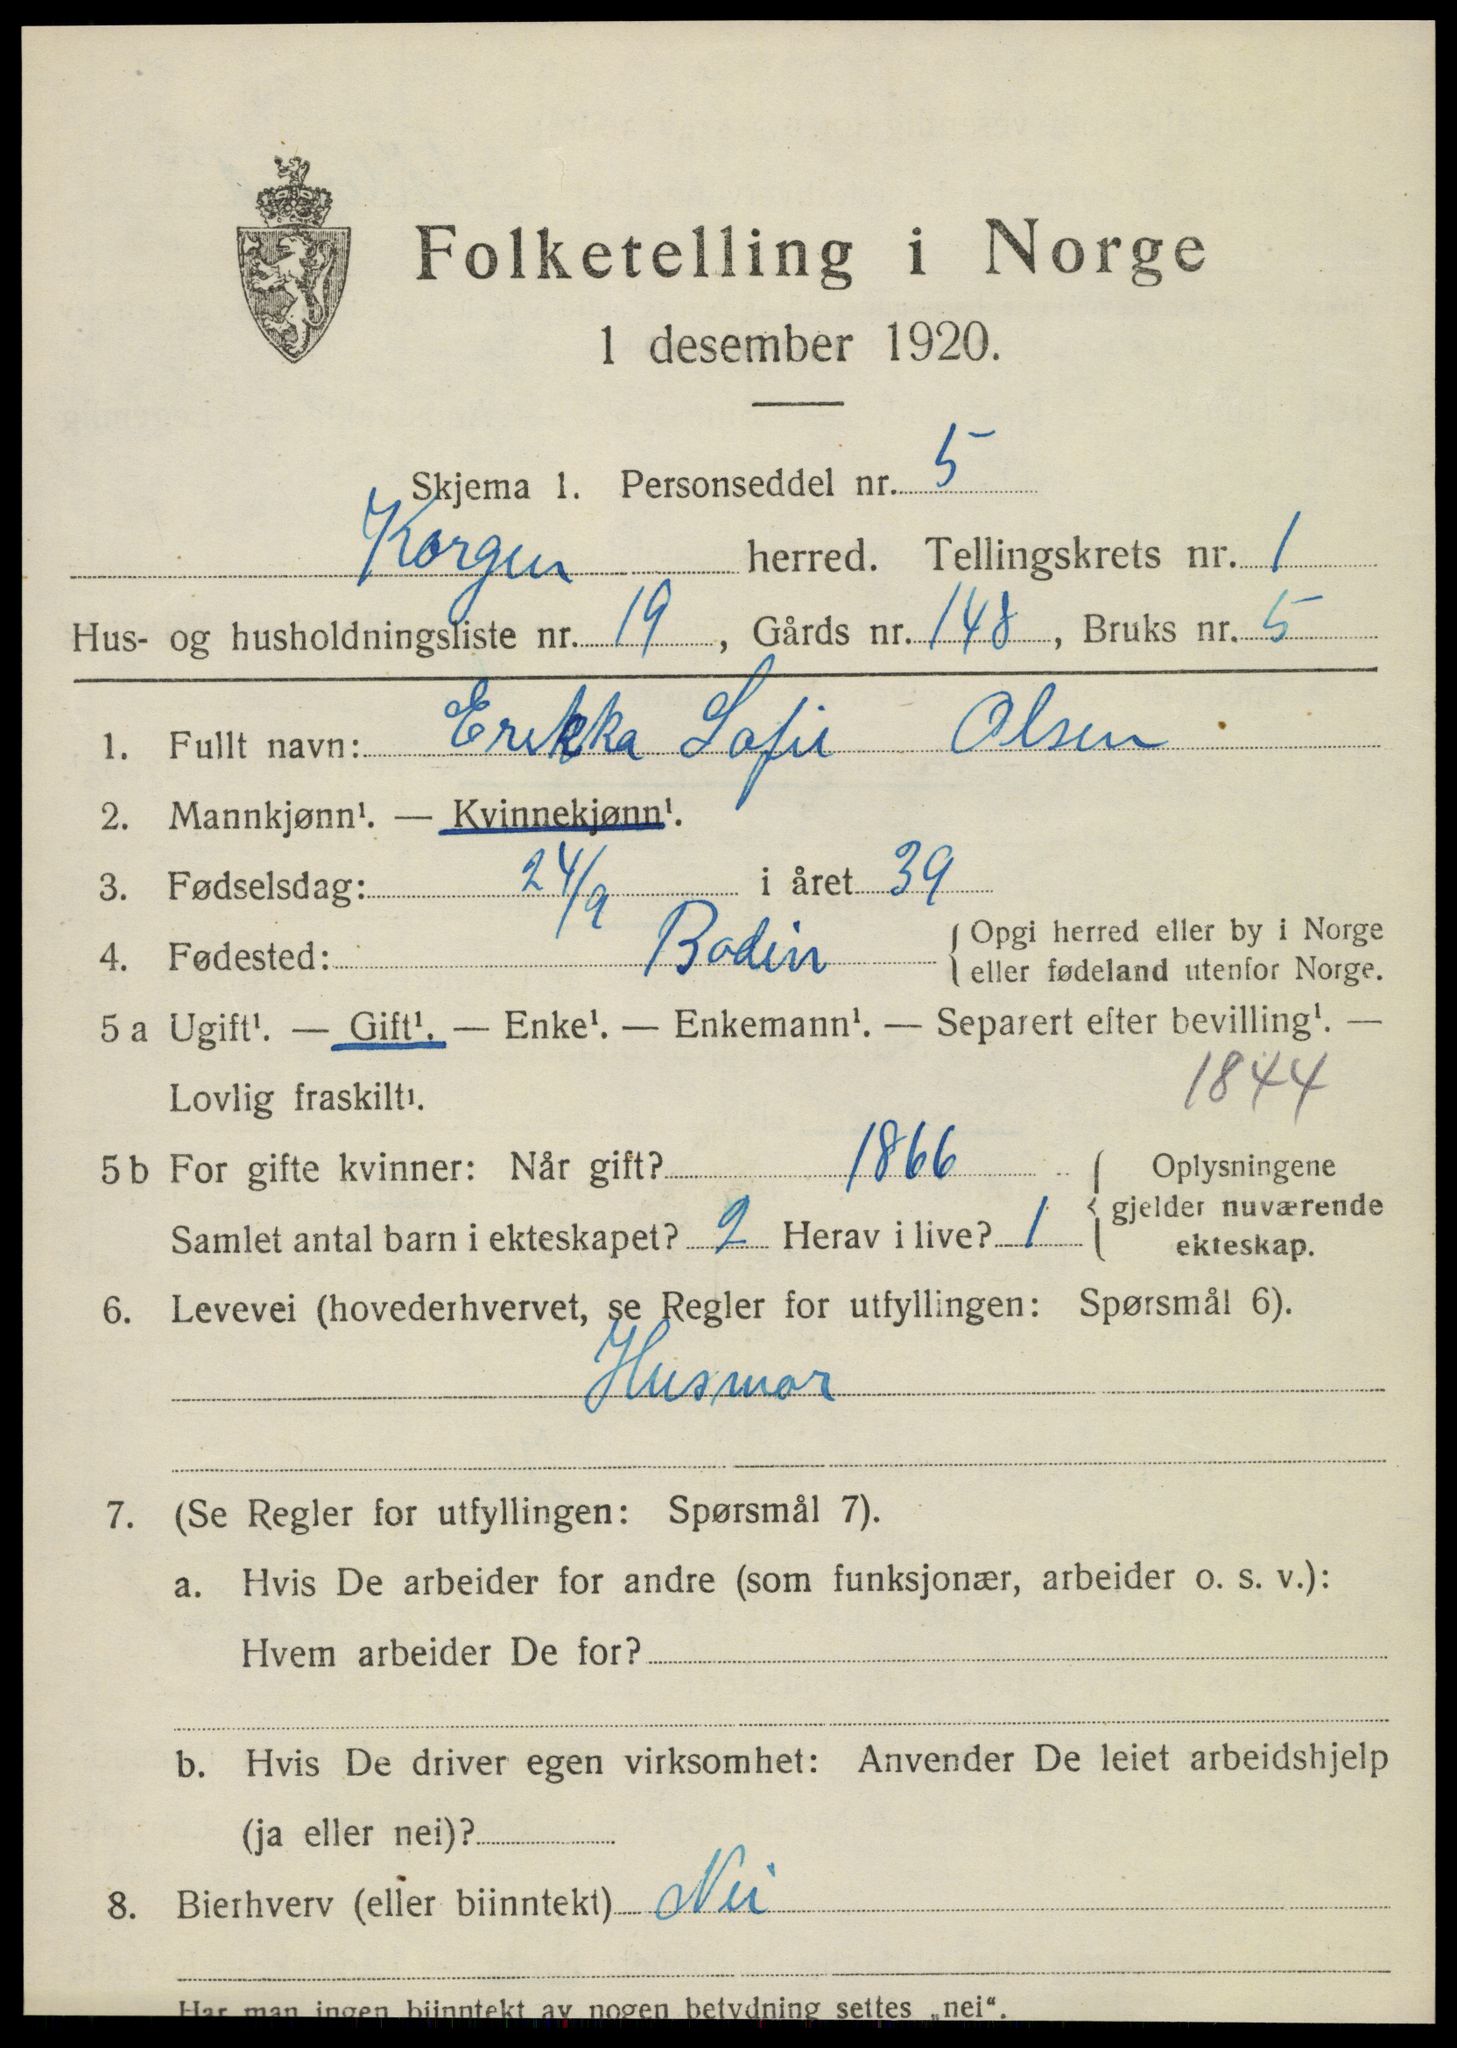 Folketelling i Norge
1 desember 1920.
Skjema 1. Personseddel nr. 5
Korgen herred. Tellingskrets nr. 1
Hus- og husholdningsliste nr. 19, Gårds nr. 148, Bruks nr. 5
1. Fullt navn: Erikka Sofie Olsen
2. Mannkjønn¹. — Kvinnekjønn¹.
3. Fødselsdag: 24/9 i året 39
4. Fødested: Bodin { Opgi herred eller by i Norge
eller fødeland utenfor Norge.
5 a Ugift¹. — Gift¹. — Enke¹. — Enkemann¹. — Separert efter bevilling¹. —
Lovlig fraskilt¹. 1844
5 b For gifte kvinner: Når gift? 1866 { Oplysningene
gjelder nuværende
Samlet antal barn i ekteskapet? 2 Herav i live? 1 ekteskap.
6. Levevei (hovederhvervet, se Regler for utfyllingen: Spørsmål 6).
Husmor
7. (Se Regler for utfyllingen: Spørsmål 7).
a. Hvis De arbeider for andre (som funksjonær, arbeider o. s. v.):
Hvem arbeider De for?
b. Hvis De driver egen virksomhet: Anvender De leiet arbeidshjelp
(ja eller nei)?
8. Bierhverv (eller biinntekt) Nei
Har man ingen biinntekt av nogen betydning settes „nei“.